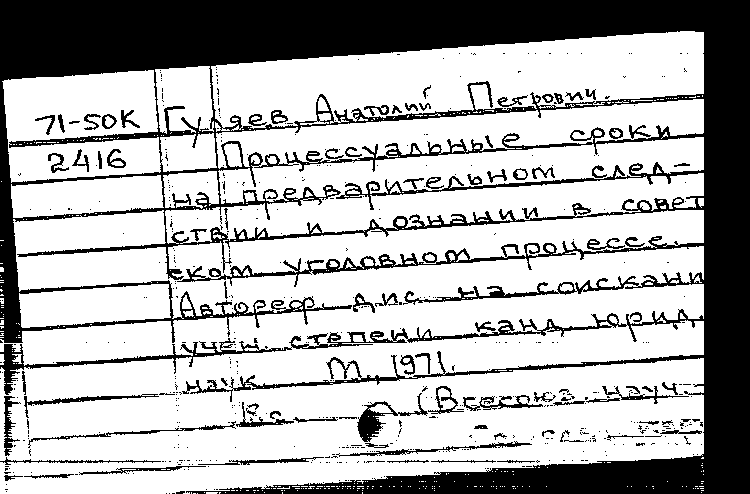 71-50К Гуляев, Анатолий Петрович.
2416 Процессуальные сроки
на предварительном след-
ствии и дознании в совет
ском уголовном процессе.
Автореф. дис. на соискани
учен. степени канд. юрид.
наук. М., 1971.
(Всесоюз. науч.-